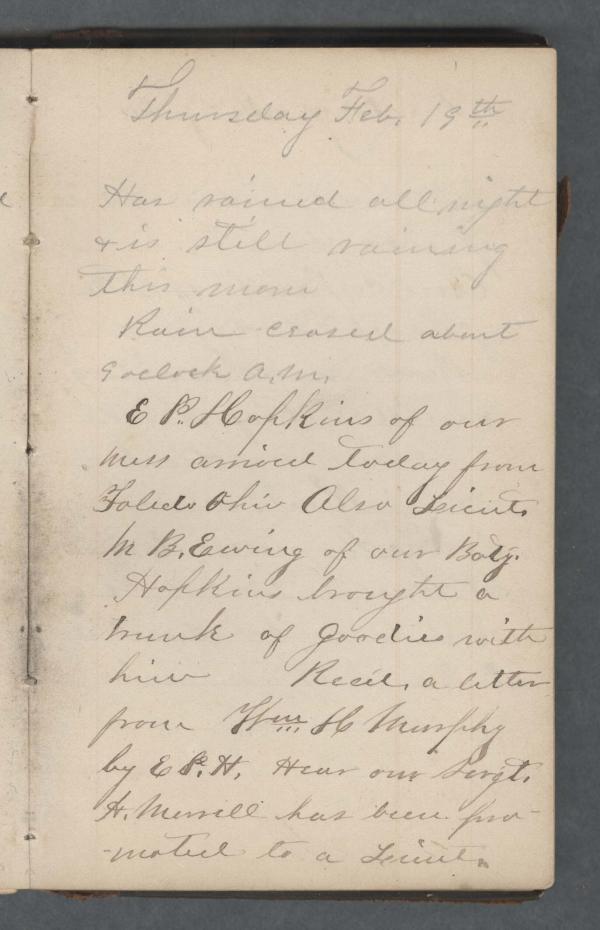 Thursday Feb. 19th
Has rained all night
& is still raining
this morn
Rain ceased about
9 oclock A.M.
E P. Hopkins of our
mess arrived today from
Toledo Ohio Also Lieut.
M B. Ewing of our Baty.
Hopkins brought a
trunk of goodies with
him Recd. a letter
from Wm H Murphy
by E P. H. Hear our Sergt.
H. Merrill has been pro-
-moted to a Lieut.